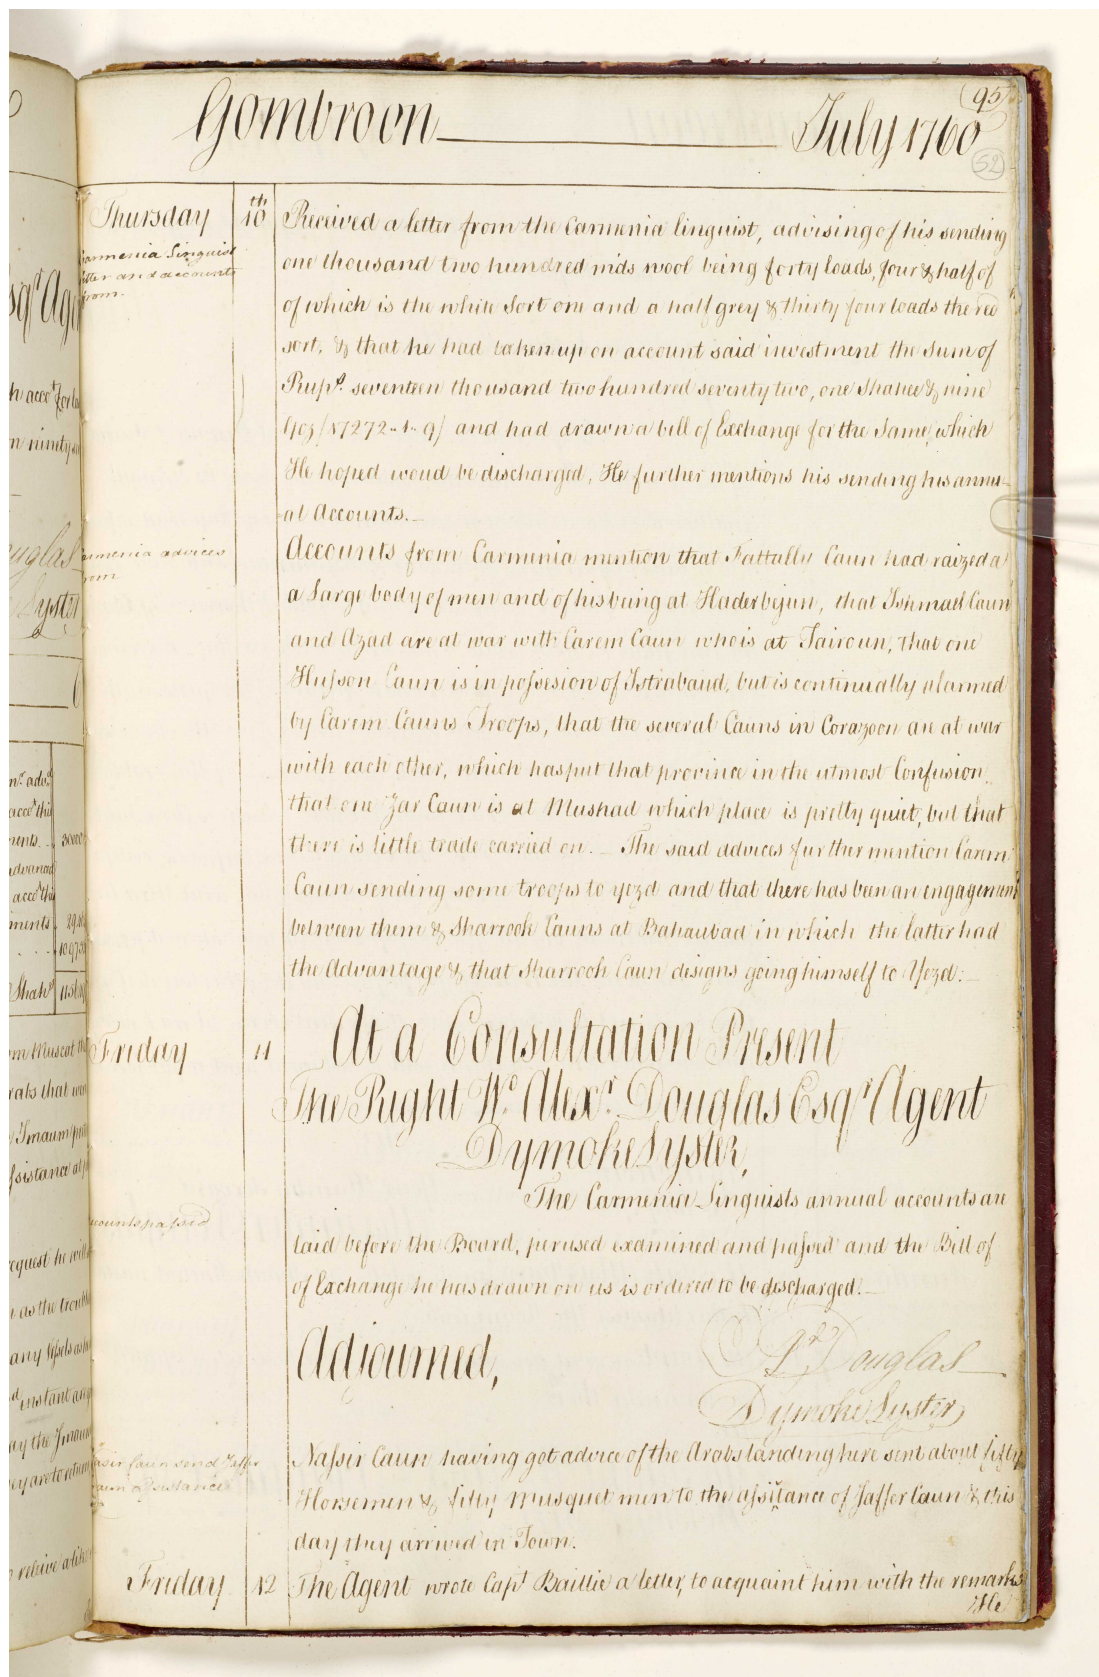 Gombroon July 1760
(95)
52
Thursday 10th
Carmenia Linguist
letter and accounts
from.
Received a letter from the Carmenia linguist, advising of his sending
one thousand two hundred mds wool being forty loads, four & half of
of which is the white Sort one and a half grey & thirty four loads the red
sort. & that he had taken up on account said investment the Sum of
Rups. seventeen thousand two hundred seventy two, one Shahee & nine
Goz /17272"1"9/ and had drawn a bill of Exchange for the Same, which
He hoped woud be discharged, He further mentions his sending his annu-
al Accounts.
Carmenia advices
from
Accounts from Carmenia mention that Fattally Caun had raized a
a Large body of men and of his being at Haderbejun, that Ishmael Caun
and Azad are at war with Carem Caun who is at Tairoun, that one
Husson Caun is in possesion of Istrabaud, but is continually alarmed
by Carem Cauns Troops, that the several Cauns in Corazoon are at war
with each other, which has put that province in the utmost Confusion,
that one Zar Caun is at Mushad which place is pretty quiet, but that
there is little trade carried on. The said advices further mention Carem
Caun sending some troops to yezd and that there has been an engagement
between them & Sharrock Cauns at Bahaubad in which the latter had
the Advantage & that Sharroch Caun designs going himself to Yezd.
Friday 11
At a Consultation Present
The Right Wo. Alexr. Douglas Esqr Agent
Dymoke Lyster,
accounts passed
The Carmenia Linguists annual accounts are
laid before the Board, perused examined and passed and the Bill of
of Exchange he has drawn on us is ordered to be discharged.
Adjourned,
Douglas
Dymoke Lyster
Nassir Caun send Jaffer
Caun assistance
Nassir Caun having got advice of the Arabs landing here sent about fifty
Horsemen & fifty Musquet men to the assistance of Jaffer Caun & this
day they arrived in Town.
Friday 12
The Agent wrote Capt Baillie a letter, to acquaint him with the remarks
He